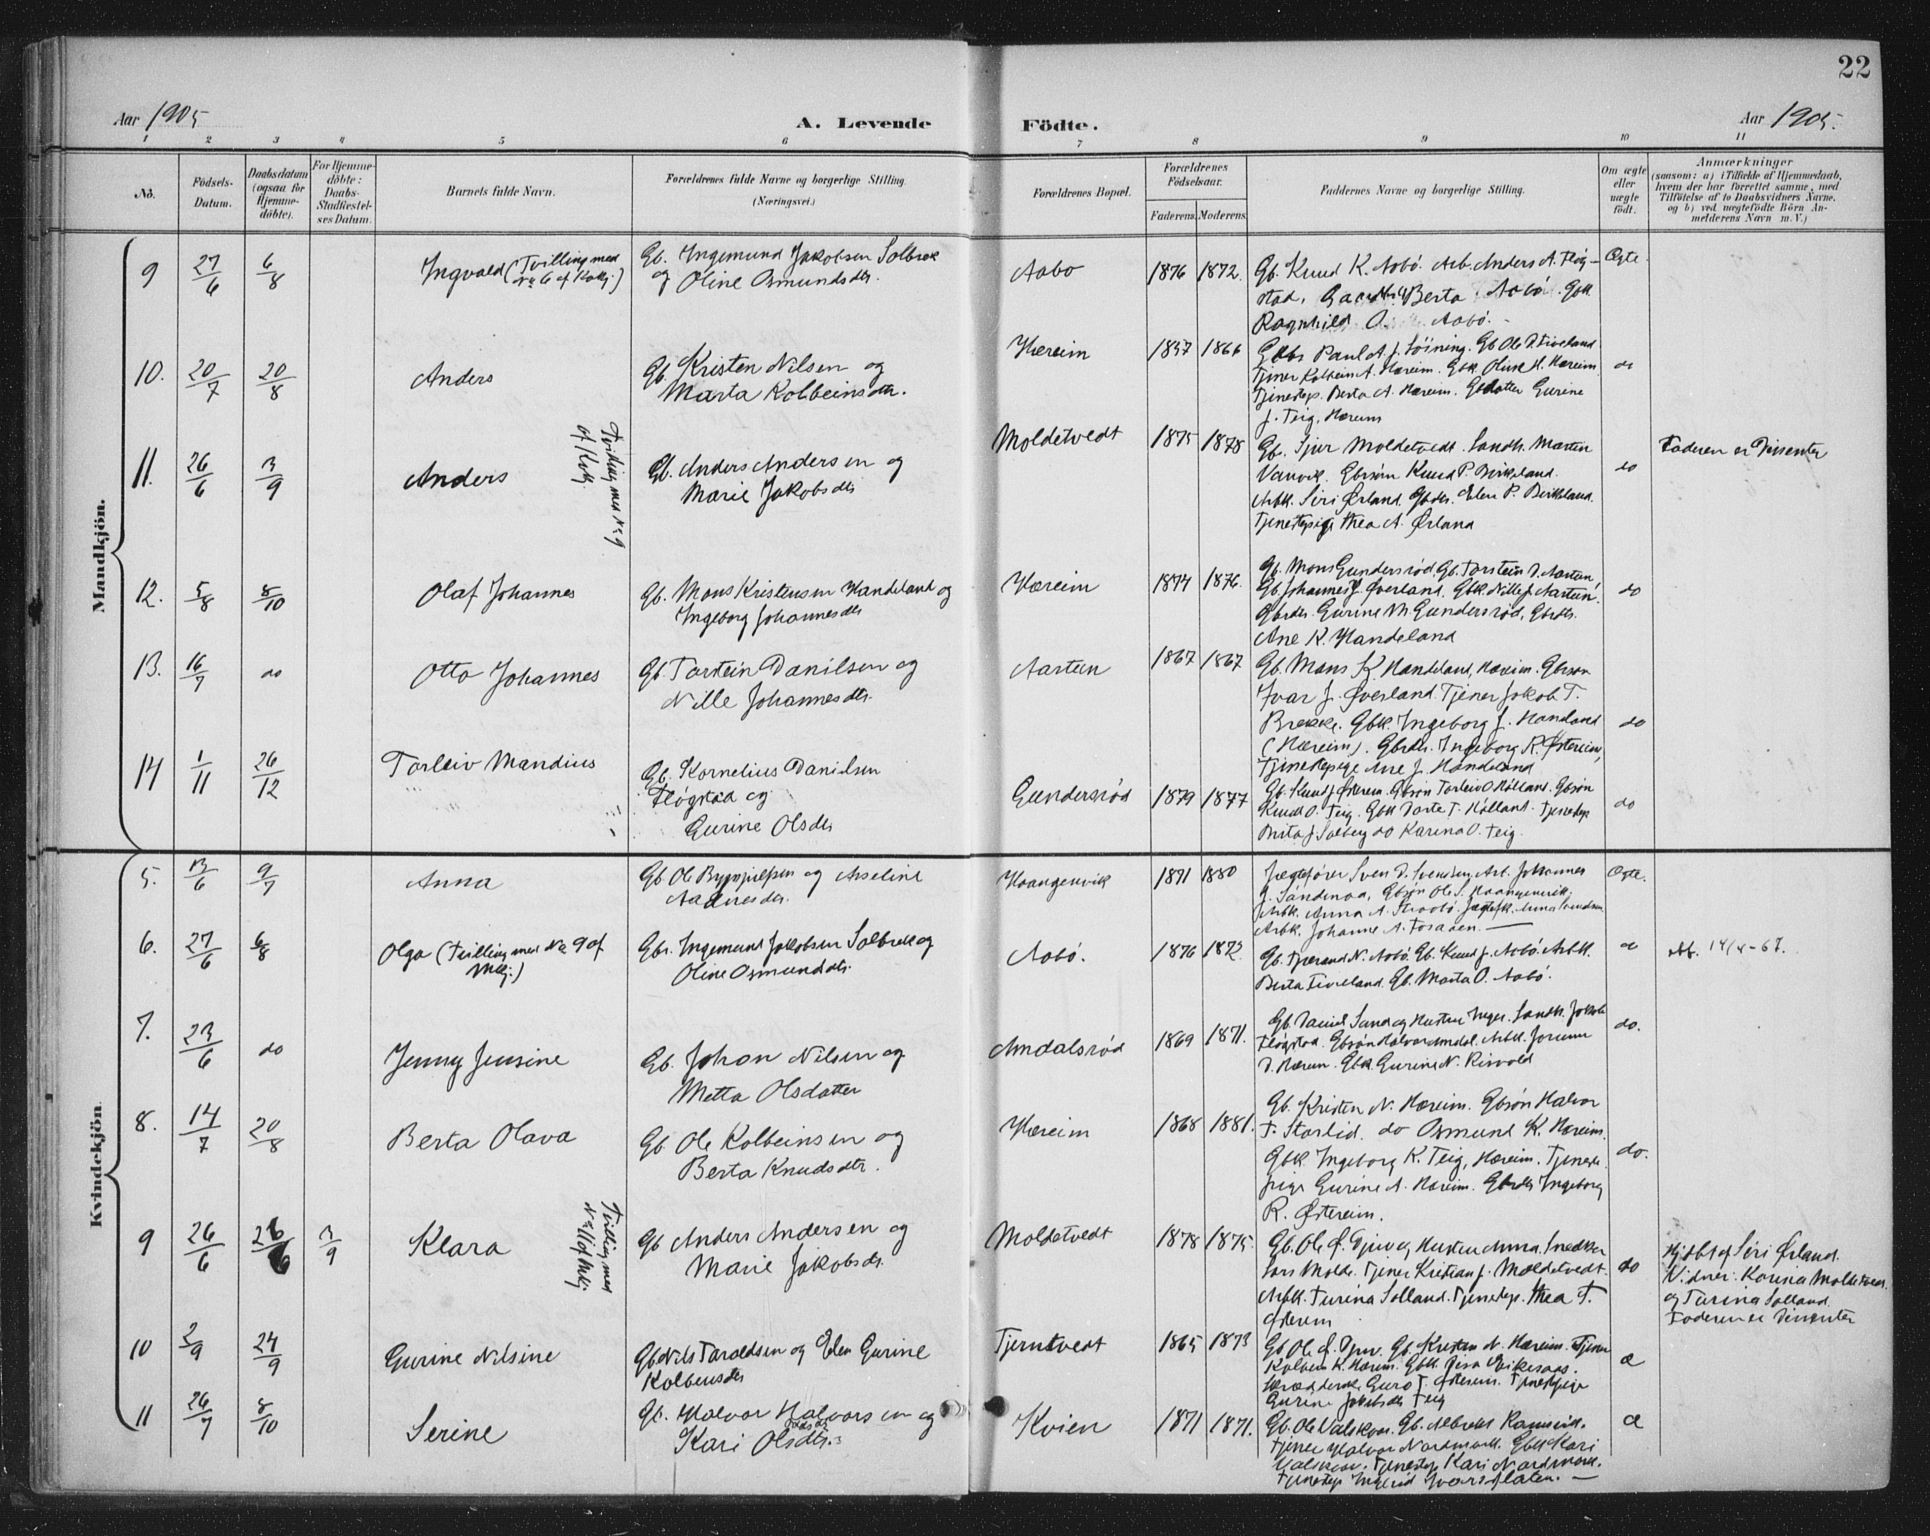 22
Aar 1905
A. Levende
Födte.
Aar 1905.
1 2 3 4 5 6 7 8 9 10 11
No.
Födsels-
Datum.
Daabsdatum
(ogsaa for
Hjemme-
döbte).
For Hjemme-
döbte:
Daabs-
Stadfæstel-
ses Datum.
Barnets fulde Navn.
Forældrenes fulde Navne og borgerlige Stilling.
(Næringsvei.)
Forældrenes Bopæl.
Forældrenes
Födselsaar.
Faderens.
Moderens.
Faddernes Navne og borgerlige Stilling.
Om ægte
eller
uægte
födt.
Anmærkninger
(saasom: a) i Tilfælde af Hjemmedaab,
hvem der har forrettet samme, med
Tilföielse af to Daabsvidners Navne.
og b) ved uægtefödte Börn An-
melderens Navn m. V.)
Mandkjön.
9 27/6 6/8 Ingvald (Tvilling med
No 6 af Kvkj.)
Gb. Ingemund Jakobsen Solbrek
og Oline Osmundsdtr.
Aabo 1876 1872.
Gb. Knud K. Aabö. Arb. Anders A. Flög-
stad, Berta Aabö. Gbk
Ragnhild O. Aabö.
Ægte.
10. 20/7 20/8 Anders
Gb. Kristen Nilsen og
Marta Kolbeinsdtr.
Hæreim 1866
Paul A. J. Gb. Ole D. Fiveland
Tjener Kolbein A. Hæreim. Gbk. Oline H. Hæreim
Tjenestep. Berta A. Hæreim. Gbdatter Gurine
J. Teig, Hæreim
do
11. 26/6 3/9 Anders
Tvilling med No 9
af Kvkj.
Gb. Anders Andersen og
Marie Jakobsdtr
Moldetvedt 1875 1878
Gb. Sjur Moldetvedt. Landh. Marten
Vanvik. Gbrsön Knud P. Birkeland.
Arbk. Siri Ørland. Gbdr. Elen P. Birkeland.
Tjenestepige Thea A. Ørland
do
Faderen er Dissenter
12. 5/8 8/10 Olaf Johannes
Gb. Mons Kristensen Handeland og
Ingeborg Johannesdtr
Hæreim 1874 1876.
Gb. Mons Gundersröd. Gb. Torstein D. Aartun,
Gb. Johannes J. Øverland. Gbk. Nille J. Aartun.
Gbrdr. Gurine M. Gundersröd, Gbrdr.
Ane K. Handeland
do
13. 16/7 do Otto Johannes
Gb. Torstein Danilsen og
Nille Johannesdtr.
Aartun 1867 1867
Gb. Mons K. Handeland, Hæreim. Gbrsön
Ivar J. Øverland. Tjener Jakob T.
Brekke. Gbk. Ingeborg J. Handland
(Hæreim). Gbrdr. Ingeborg R. Østereim,
Tjenestepige Ane J. Handeland
do
14 1/11 26/12 Torleiv Mandius
Gb. Kornelius Danielsen
Flögstad og
Gurine Olsdtr
Gundersröd 1879 1877
Gb. Knud J. Østerein. Gbsön Torleiv O. Hölland. Gbsön
Knud O. Teig. Gbk Dorte T. Hölland. Tjenestep
Brita J. Solberg do Karina O. Teig.
do
Kvindekjön.
5. 13/6 9/7 Anna
Gb Ole og Asseline
Aadnesdtr.
Haangenvik 1871 1880
Jægtefører Sven D. Svendsen, Arb. Johannes
J. Sandenaa, Gbsön Ole S. Haangenvik.
Arbk. Anna A. Jægtefk. Anna Svendsen
Arbk. Johanne A.
Ægte.
6. 27/6 6/8 Olga (Tvilling med No 9 af
Mkj.)
Gbr. Ingemund Jakobsen Solbrek og
Oline Osmundsdtr.
Aabö. 1876 1872.
Gb. Tjerand N. Aabö. Gb. Knud J. Aabö. Arbk.
Berta Fiveland. Gb. Marta O. Aabö.
do
7. 23/6 do Jenny Jensine
Gb. Johan Nilsen og
Metta Olsdatter
Amdalsröd 1869 1871.
Gb. Daniel Sand og Hustru Inger. Landh. Jakob
Flögstad. Gbsön Halvor Amdal. Arbk. Jorunn
D. Hæreim. Gbk. Gurine N. Risvold
do.
8. 14/7 20/8 Berta Olava
Gb. Ole Kolbeinsen og
Berta Knudsdtr.
Hæreim 1868 1881.
Gb. Kristen N. Hæreim. Gbsön Halvor
T. Storlid. do Osmund K. Hæreim.
Gbk. Ingeborg K. Teig, Hæreim. Tjeneste-
pige Gurine A. Hæreim. Gbrdr Ingeborg
R. Østereim.
do.
9 26/6 26/6 3/9 Klara
Tvilling med
No 11 af Mkj.
Gb Anders Andersen og
Marie Jakobsdtr.
Moldetvedt 1878 1875.
Gb. Ole Ø. Djuv og Hustru Anna. Snedker
Lars Molde. Tjener Kristian J. Moldetvedt.
Arbk. Turina Solland. Tjenestep. Thea T.
Østerein
do
Hjdbt af Siri Ørland.
Vidner: Karina Moldetvedt
og Turina Solland.
Faderen er Dissenter
10 2/9 24/9 Gurine Nilsine
Gb Nils Taraldsen og Elen Gurine
Kolbeinsdtr
Tjerntvedt 1865 1873
Gb Ole Ø. Djuv. Gb. Kristen N. Hæreim. Tjener
Kolbein K. Hæreim. Gbk.
Guro T. Østereim. Tjenestepige
Gurine Jakobsdtr Teig
11 26/7 8/10 Serine
Gb. Halvor Halvorsen og
Kari Olsdtr.
Kvien 1871 1871.
Gb. Ole Valskaar. Gb. Albrekt Ramseid.
Tjener Halvor Nordmark. Gbk Kari
Valskaar. Tjenestep. Kari Nordmark.
Tjenestep Ingerid Ivarsflaten.